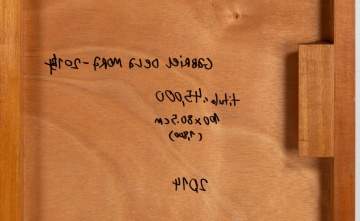 GABRIEL DELA MORA-2014
titulo: 45,000
100x80.5cm
(1,800)
2014